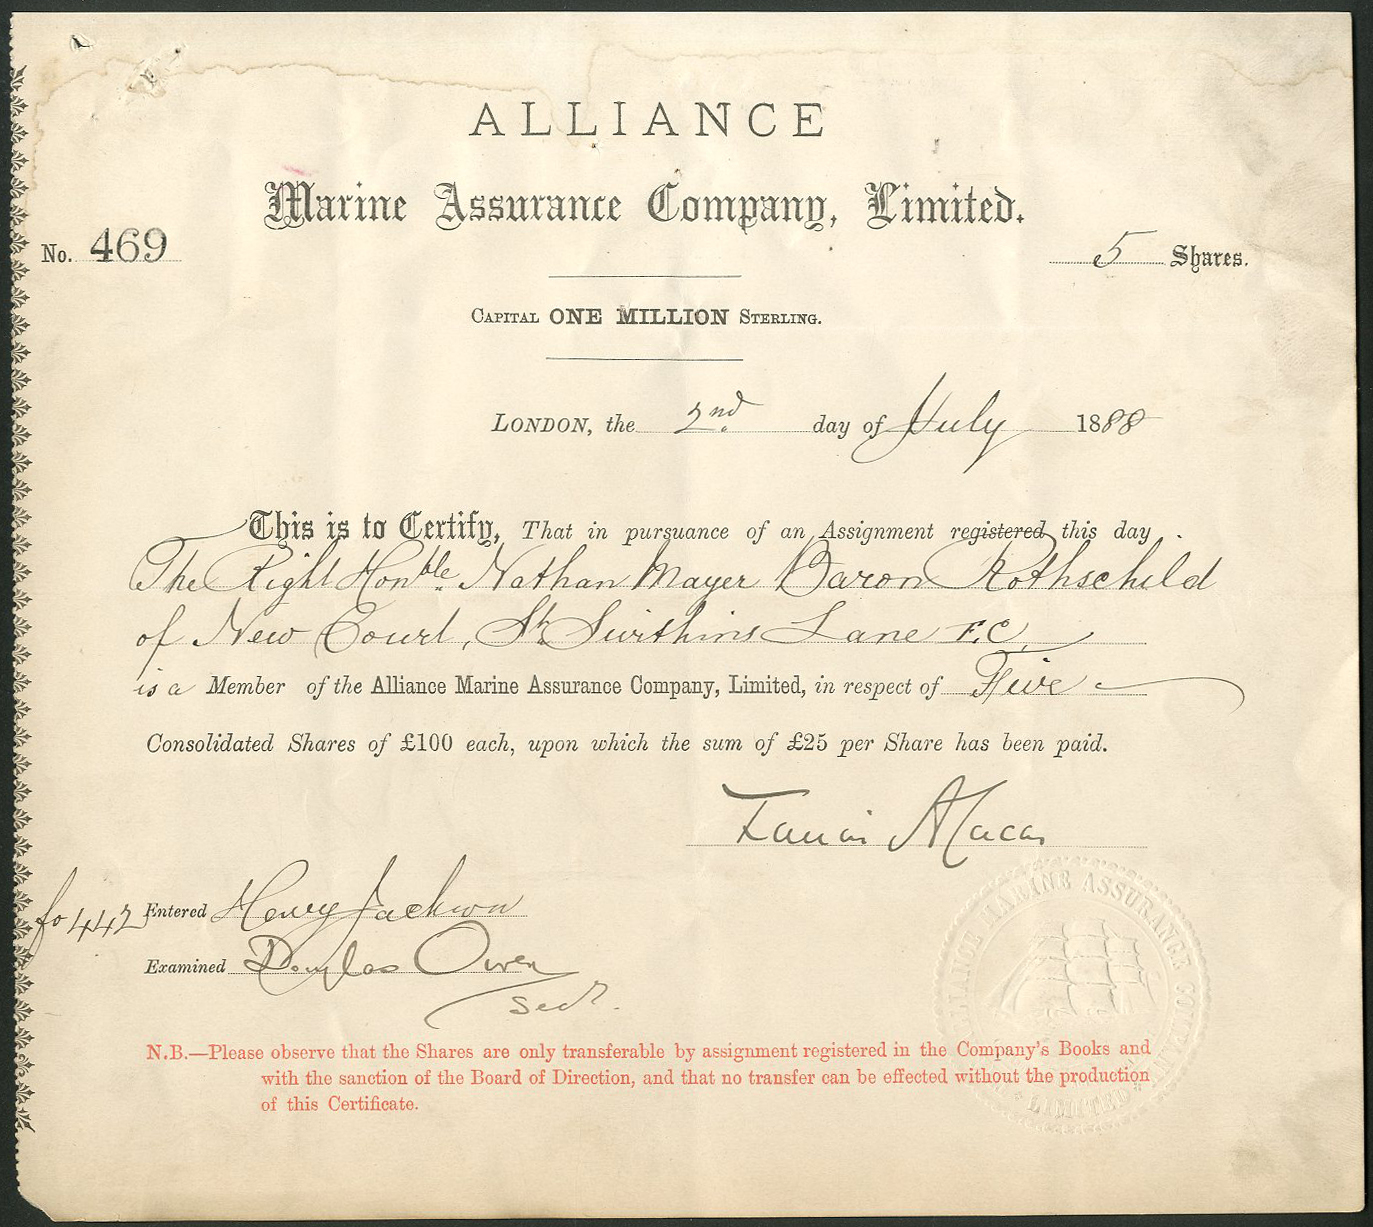 ALLIANCE
Marine Assurance Company, Limited.
No. 469
5 Shares.
CAPITAL ONE MILLION STERLING.
LONDON, the 2nd. day of July 1888
This is to Certify, That in pursuance of an Assignment registered this day
The Right Honble. Nathan Mayer Baron Rothschild
of New Court, St. Swithins Lane E.C.
is a Member of the Alliance Marine Assurance Company, Limited, in respect of Five
Consolidated Shares of £100 each, upon which the sum of £25 per Share has been paid.
fo 442 Entered Henry Jackson
Examined Douglas Owen
Secr.
ALLIANCE MARINE ASSURANCE COMPANY
LIMITED
N.B.—Please observe that the Shares are only transferable by assignment registered in the Company's Books and
with the sanction of the Board of Direction, and that no transfer can be effected without the production
of this Certificate.